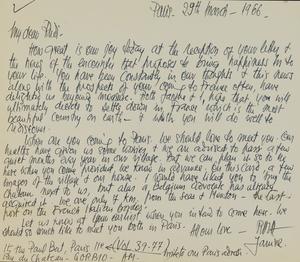 Paris. 29th March - 1966.
My dear
How great is our joy today at the reception of your letter &
the news of the encounter that purposes to bring happiness in to
your life. You have been constantly in our thoughts & this news
along with the prospects of your coming to France often, have
delighted us beyond measure both hope that you will
ultimately decide to settle down in France which is the most
beautiful country on earth - & which you will do well to
When are you coming to Paris. We should love to meet you. Our
healths have given us some worries & we are advised to pass a few
quiet months every year in our village. but we can plan it so to be
here when you come provided we know in advance. On this card a few
images of the village & our house. I would have liked you to buy the
to let but alas a Belgian advocate has already
acquired it. We are only 7 km. from the sea & Menton - the last
port on the French Italian border.
Let us know at your earliest when you intend to come here. We
should so much like to meet you both in Paris. All our love -
15 rue Paul Bert, Paris 11e
GORBIO - AM -